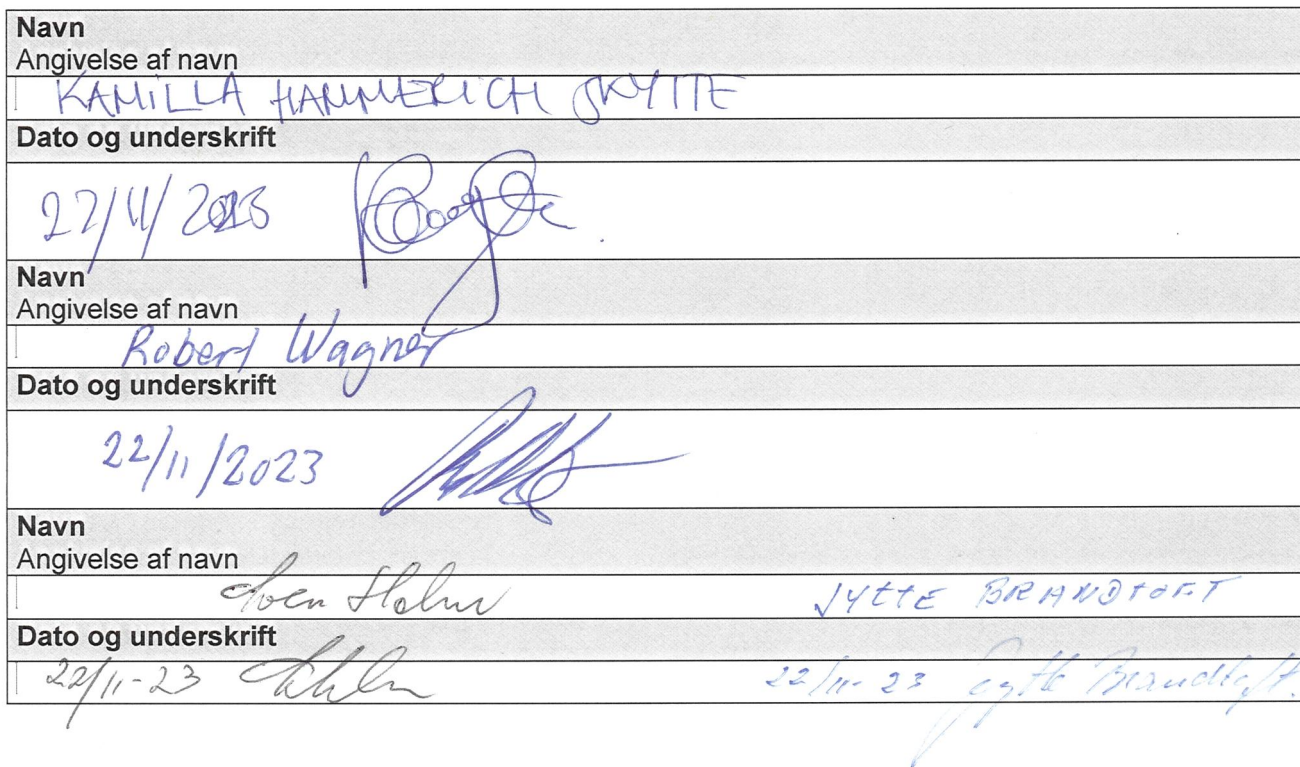 Navn
Angivelse af navn
KAMILLA HAMMERICH SKYTTE
Dato og underskrift
22/11/2023
Navn
Angivelse af navn
Robert Wagner
Dato og underskrift
22/11/2023
Navn
Angivelse af navn
Sven Holm JYTTE BRANDTOFT
Dato og underskrift
22/11-23 22/11-23 Jytte Brandtoft.